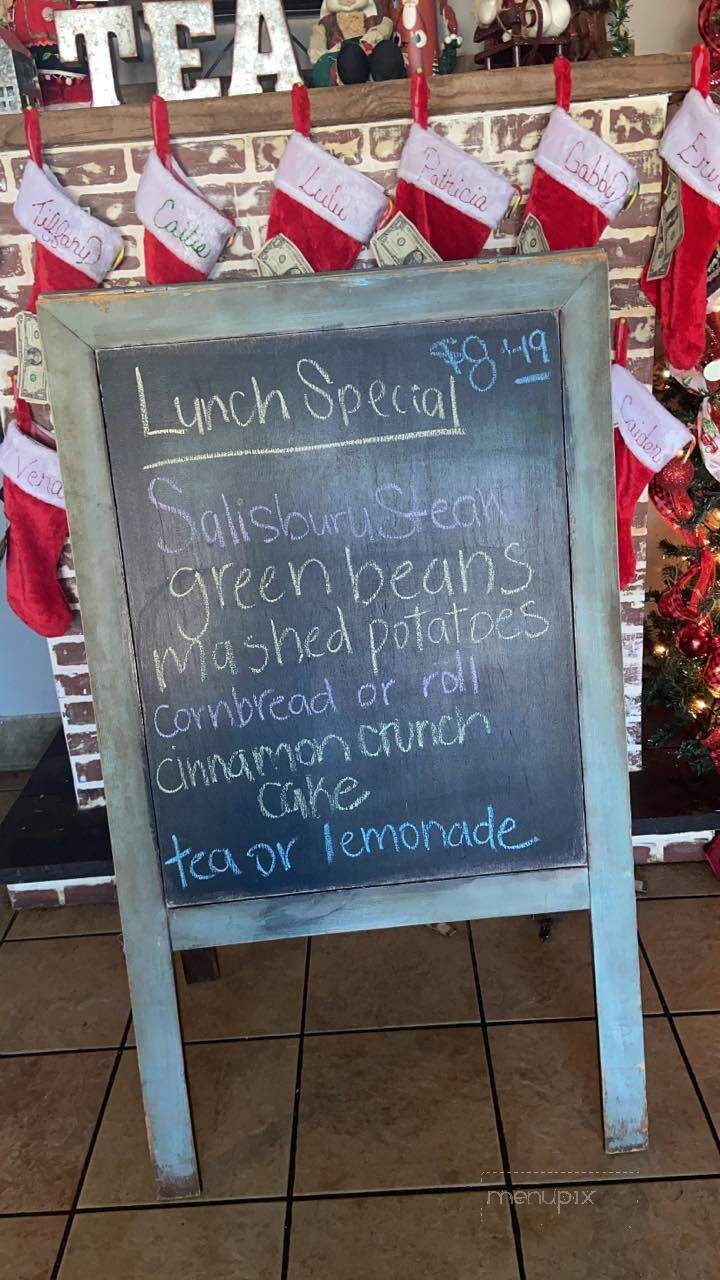 TEA
Tiffany
Caitie
Lulu
Patricia
Gabby
Vena
Caiden
$8.49
Lunch Special
Salisbury Steak
green beans
mashed potatoes
cornbread or roll
cinnamon crunch
cake
tea or lemonade
menupix